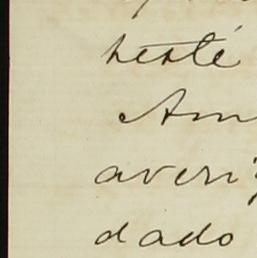 testé
Am
averi
dado